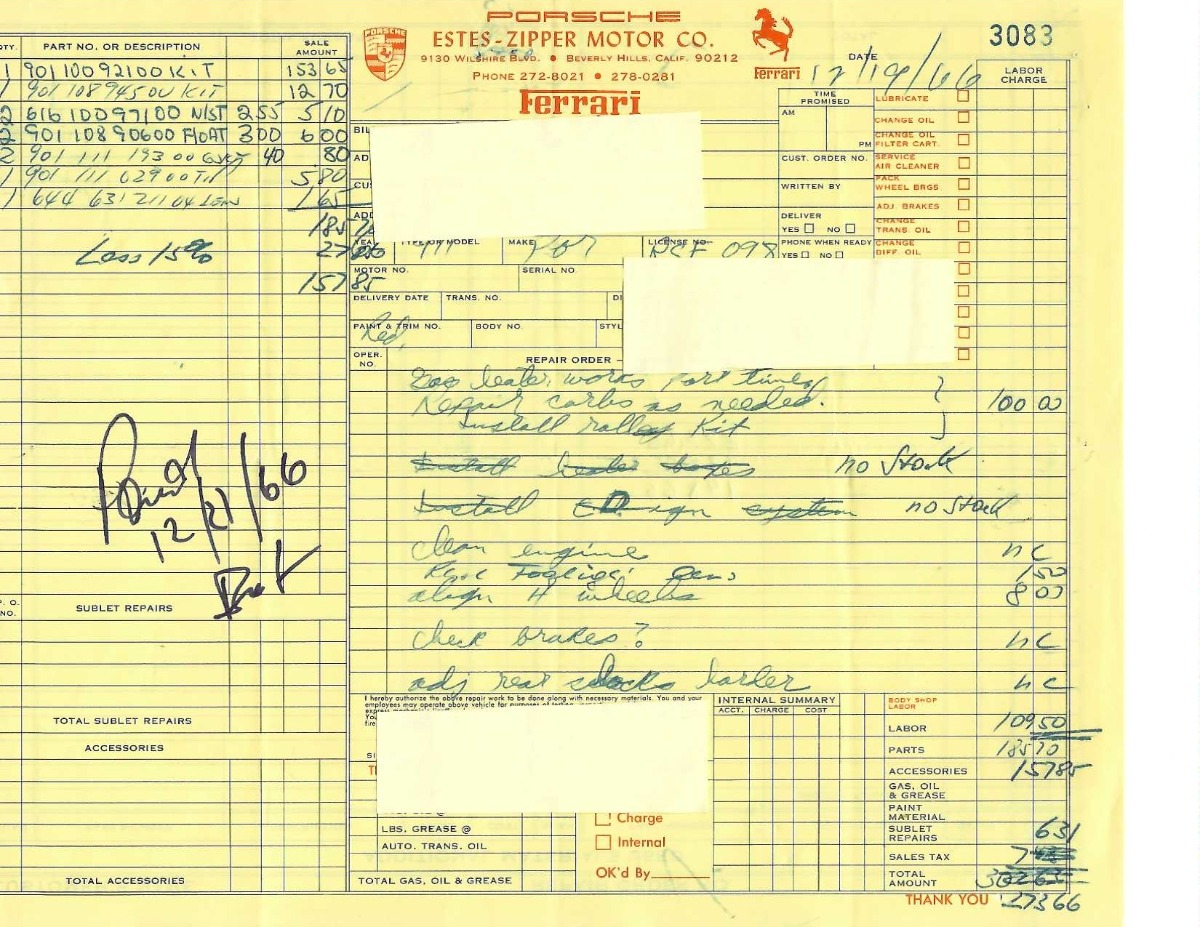 PORSCHE
PORSCHE
ESTES-ZIPPER MOTOR CO.
9130 WILSHIRE BLVD. • BEVERLY HILLS, CALIF. 90212
PHONE 272-8021 • 278-0281
Ferrari
Ferrari
3083
DATE 12/19/66
LABOR CHARGE
QTY. PART NO. OR DESCRIPTION SALE AMOUNT
1 901 100 921 00 KIT 153 65
1 901 108 945 00 KIT 12 70
2 616 100 971 00 N/ST 255 5/10
2 901 108 906 00 FLOAT 300 6 00
2 901 111 193 00 40 80
1 901 111 629 00 5 80
1 644 631 211 04 Lens 1 65
185 70
Less 15%
157 85
TIME PROMISED
AM
PM
CUST. ORDER NO.
WRITTEN BY
DELIVER
YES NO
PHONE WHEN READY
YES NO
LUBRICATE
CHANGE OIL
CHANGE OIL FILTER CART.
SERVICE AIR CLEANER
PACK WHEEL BRGS.
ADJ. BRAKES
CHANGE TRANS. OIL
CHANGE DIFF. OIL
TYPE OR MODEL 911 MAKE Por LICENSE NO. 098
MOTOR NO. SERIAL NO.
DELIVERY DATE TRANS. NO.
PAINT & TRIM NO. Red BODY NO.
OPER. NO. REPAIR ORDER
Gas heater works part time
Repair carbs as needed. 100 00
Install ralley Kit
Install heater boxes no Stock
Install ign system no Stock
clean engine nc
lens 1 50
align 4 wheels 8 00
check brakes? nc
adj rear shocks harder nc
Paid
12/21/66
P. O. NO. SUBLET REPAIRS
TOTAL SUBLET REPAIRS
ACCESSORIES
TOTAL ACCESSORIES
I hereby authorize the above repair work to be done along with necessary materials. You and your
employees may operate above vehicle for purposes of testing,
LBS. GREASE @
AUTO. TRANS. OIL
TOTAL GAS, OIL & GREASE
Charge
Internal
OK'd By
INTERNAL SUMMARY
ACCT. CHARGE COST
BODY SHOP LABOR
LABOR 109 50
PARTS 185 70
ACCESSORIES 157 85
GAS, OIL & GREASE
PAINT MATERIAL
SUBLET REPAIRS 6 31
SALES TAX
TOTAL AMOUNT
THANK YOU 273 66